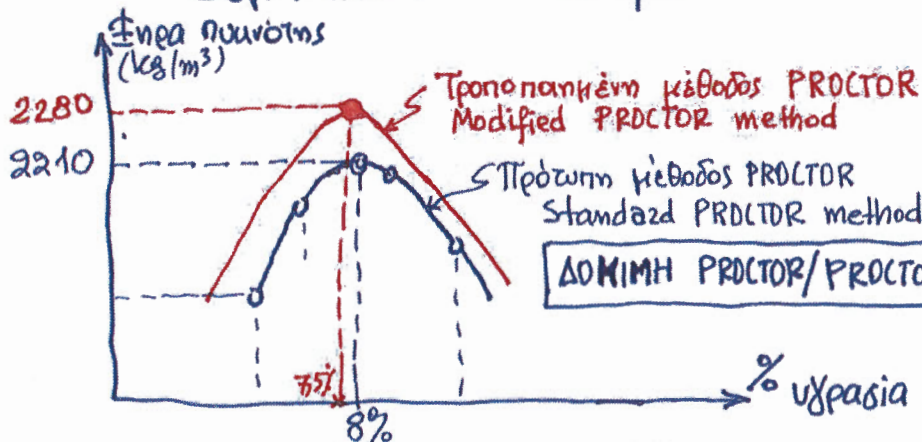 Ξηρα πυκνότης
(kg/m³)
2280
Τροποποιημένη μέθοδος PROCTOR
Modified PROCTOR method
2210
Πρότυπη μέθοδος PROCTOR
Standard PROCTOR method
ΔΟΚΙΜΗ PROCTOR/PROCTO
7,5%
8%
% υγρασία